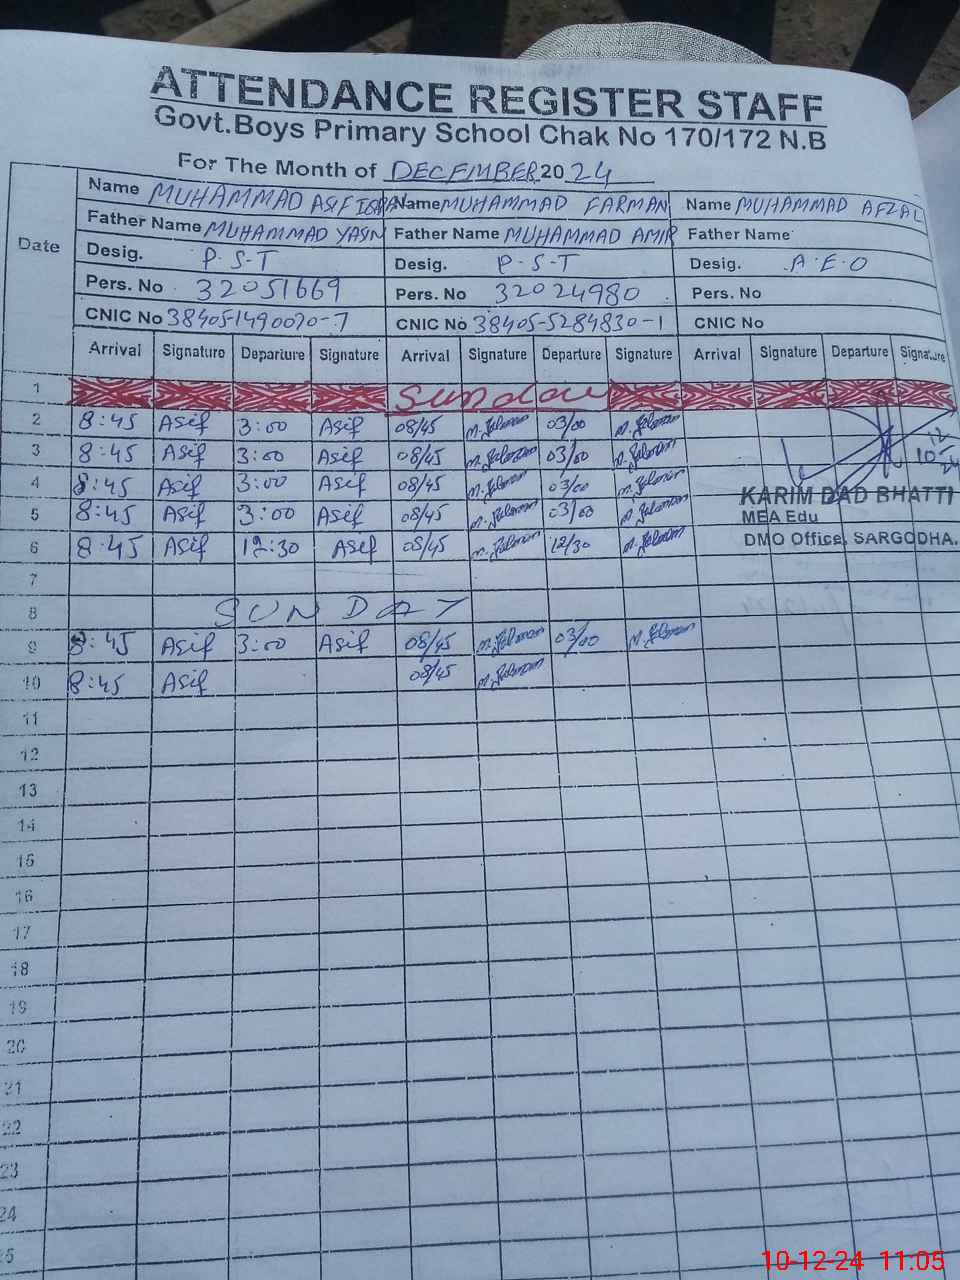 ATTENDANCE REGISTER STAFF
Govt.Boys Primary School Chak No 170/172 N.B
For The Month of DECEMBER 2024
Date
Name MUHAMMAD ASIF Name MUHAMMAD FARMAN Name MUHAMMAD AFZAL
Father Name MUHAMMAD YASIN Father Name MUHAMMAD AMIR Father Name
Desig. P.S.T Desig. P.S.T Desig. A.E.O
Pers. No 32051669 Pers. No 32024980 Pers. No
CNIC No 38405-1490070-7 CNIC No 38405-5284830-1 CNIC No
Arrival Signature Departure Signature Arrival Signature Departure Signature Arrival Signature Departure Signature
1 Sunday
2 8:45 Asif 3:00 Asif 08/45 03/00
3 8:45 Asif 3:00 Asif 08/45 03/00
4 8:45 Asif 3:00 Asif 08/45 03/00
5 8:45 Asif 3:00 Asif 08/45 03/00
6 8:45 Asif 12:30 Asif 08/45 12/30
10-12-24
KARIM DAD BHATTI
MEA Edu
DMO Office, SARGODHA.
7
8 SUNDAY
9 8:45 Asif 3:00 Asif 08/45 03/00
10 8:45 Asif 08/45
11
12
13
14
15
16
17
18
19
20
21
22
23
24
10-12-24 11:05